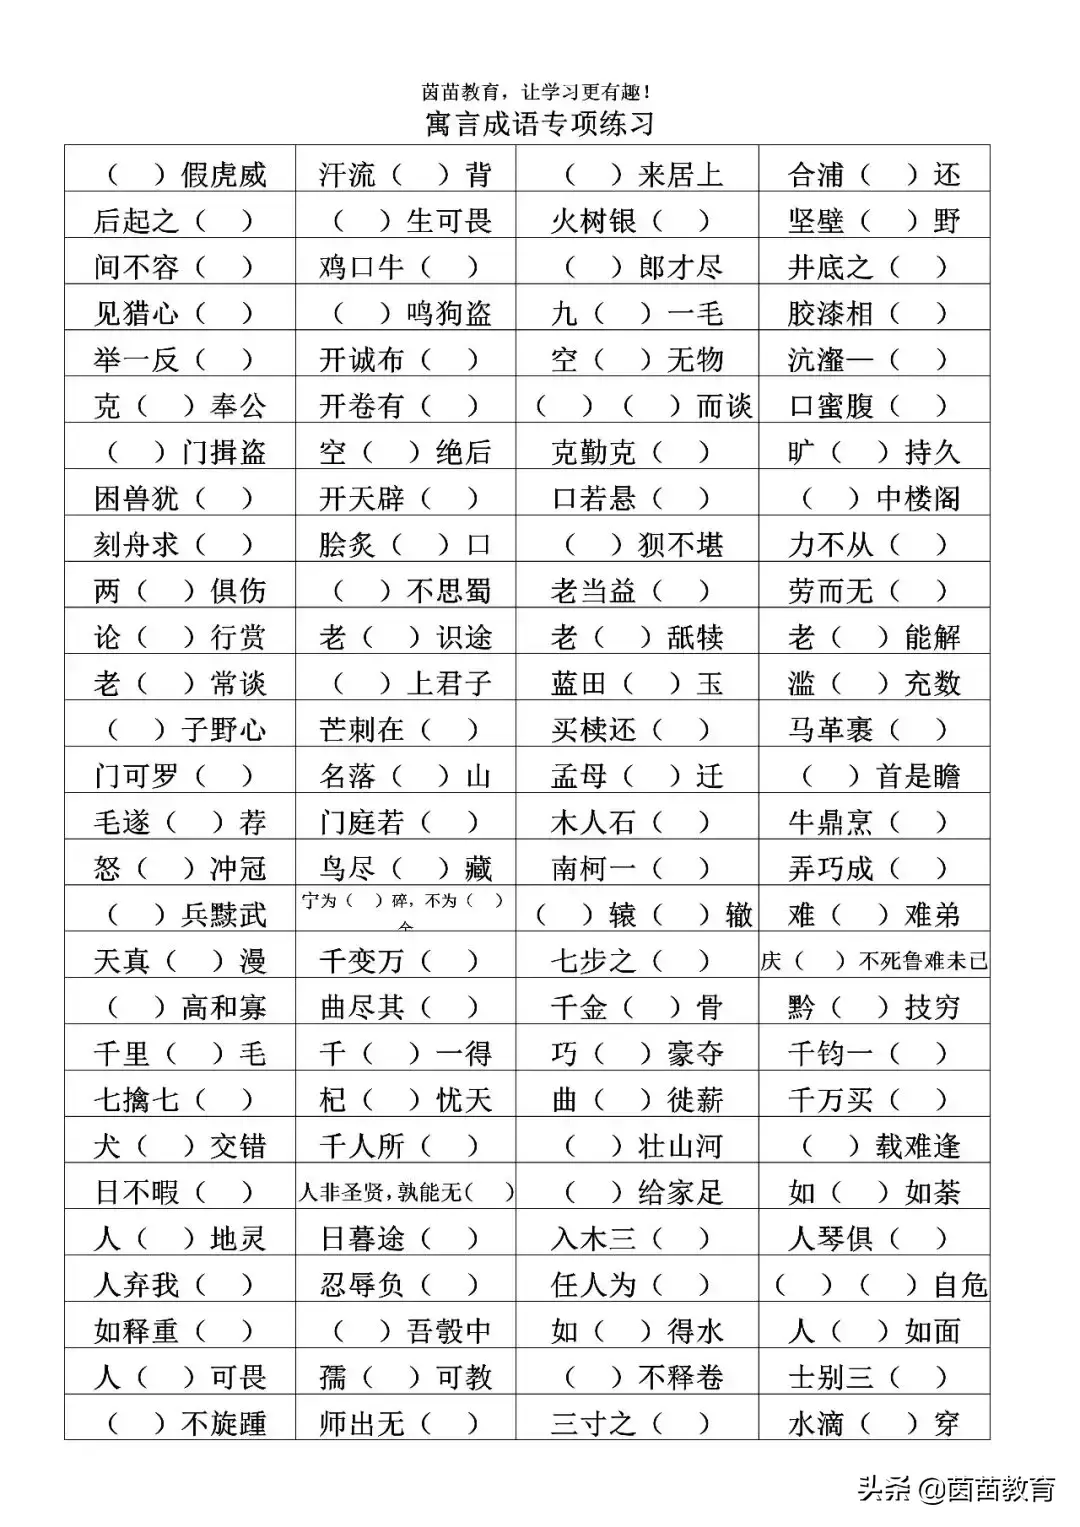 茵苗教育，让学习更有趣！
寓言成语专项练习
（　）假虎威　汗流（　）背　（　）来居上　合浦（　）还
后起之（　）　（　）生可畏　火树银（　）　坚壁（　）野
间不容（　）　鸡口牛（　）　（　）郎才尽　井底之（　）
见猎心（　）　（　）鸣狗盗　九（　）一毛　胶漆相（　）
举一反（　）　开诚布（　）　空（　）无物　沆瀣—（　）
克（　）奉公　开卷有（　）　（　）（　）而谈　口蜜腹（　）
（　）门揖盗　空（　）绝后　克勤克（　）　旷（　）持久
困兽犹（　）　开天辟（　）　口若悬（　）　（　）中楼阁
刻舟求（　）　脍炙（　）口　（　）狈不堪　力不从（　）
两（　）俱伤　（　）不思蜀　老当益（　）　劳而无（　）
论（　）行赏　老（　）识途　老（　）舐犊　老（　）能解
老（　）常谈　（　）上君子　蓝田（　）玉　滥（　）充数
（　）子野心　芒刺在（　）　买椟还（　）　马革裹（　）
门可罗（　）　名落（　）山　孟母（　）迁　（　）首是瞻
毛遂（　）荐　门庭若（　）　木人石（　）　牛鼎烹（　）
怒（　）冲冠　鸟尽（　）藏　南柯一（　）　弄巧成（　）
（　）兵黩武　宁为（　）碎，不为（　）全　（　）辕（　）辙　难（　）难弟
天真（　）漫　千变万（　）　七步之（　）　庆（　）不死鲁难未已
（　）高和寡　曲尽其（　）　千金（　）骨　黔（　）技穷
千里（　）毛　千（　）一得　巧（　）豪夺　千钧一（　）
七擒七（　）　杞（　）忧天　曲（　）徙薪　千万买（　）
犬（　）交错　千人所（　）　（　）壮山河　（　）载难逢
日不暇（　）　人非圣贤，孰能无（　）　（　）给家足　如（　）如荼
人（　）地灵　日暮途（　）　入木三（　）　人琴俱（　）
人弃我（　）　忍辱负（　）　任人为（　）　（　）（　）自危
如释重（　）　（　）吾彀中　如（　）得水　人（　）如面
人（　）可畏　孺（　）可教　（　）不释卷　士别三（　）
（　）不旋踵　师出无（　）　三寸之（　）　水滴（　）穿
头条 @茵苗教育